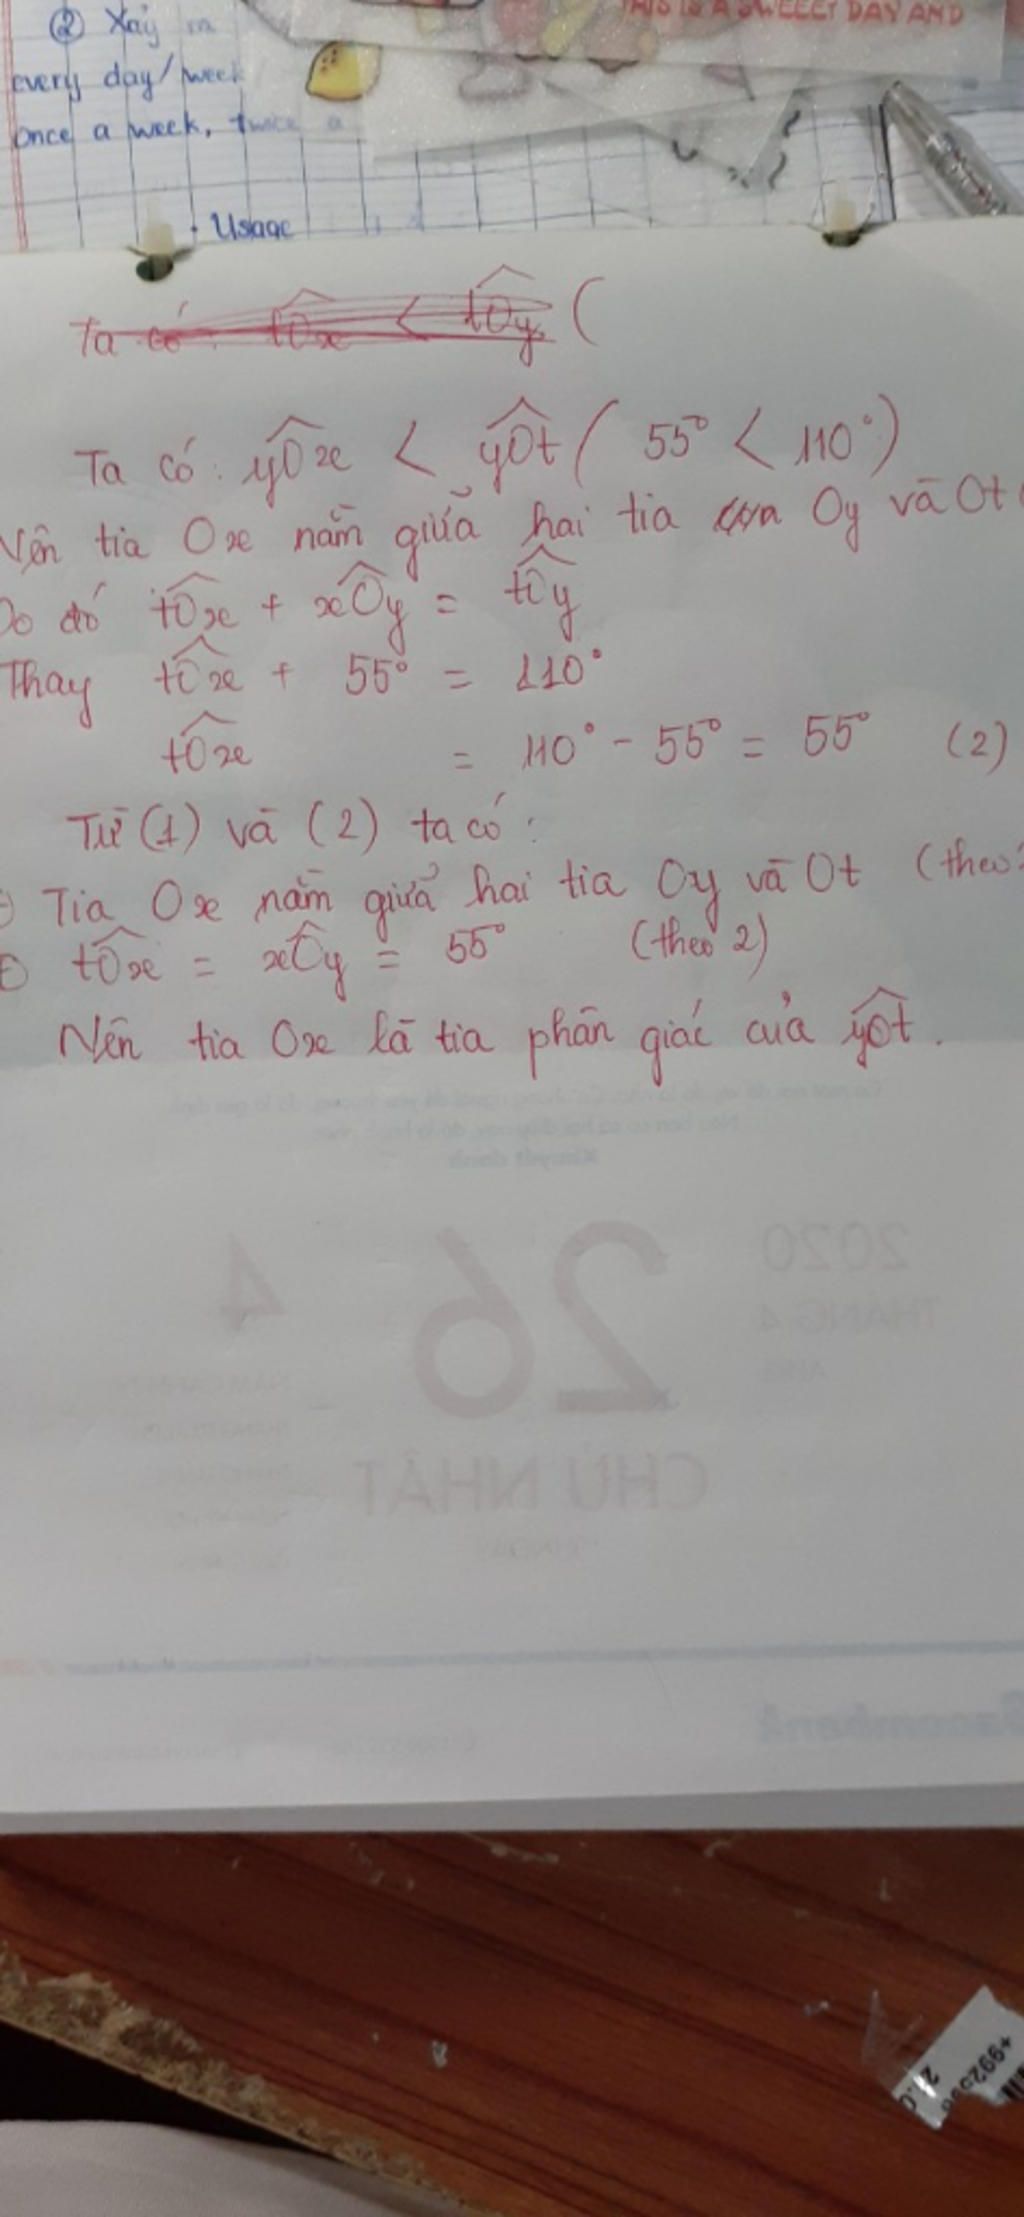 ② Xảy
every day/week
once a week, twice a
THIS IS A SWEEET DAY AND
Usage
Ta có: tÔx < tÔy (
Ta có: yÔx < yÔt ( 55° < 110° )
Nên tia Ox nằm giữa hai tia Oy và Ot
Do đó tÔx + xÔy = tÔy
Thay tÔx + 55° = 110°
tÔx = 110° - 55° = 55° (2)
Từ (1) và (2) ta có:
Tia Ox nằm giữa hai tia Oy và Ot (theo
tÔx = xÔy = 55° (theo 2)
Nên tia Ox là tia phân giác của yÔt.
2020
THÁNG 4
26
4
CHỦ NHẬT
SUNDAY
Sacombank